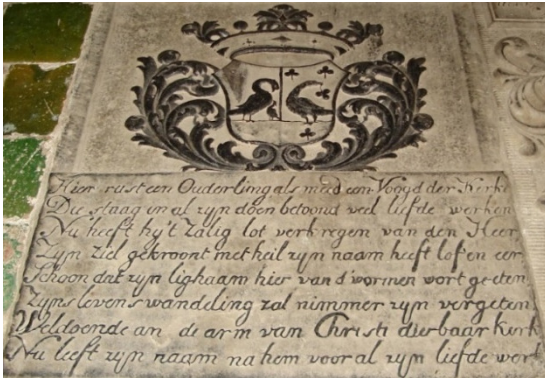 Hier rust een Ouderling als med een Voogd der Kerk
Die staag in al zyn doen betoond veel liefde werken
Nu heeft hy't Zalig lot verkregen van den Heer
Zyn Ziel gekroont met heil zyn naam heeft lof en eer
Schoon dat zyn lighaam hier van d'wormen wort geeten
Zyns levens wandeling zal nimmer zyn vergeten
Weldoende an de arm van Christi dierbaar kerk
Nu leeft zyn naam na hem voor al zyn liefde werk